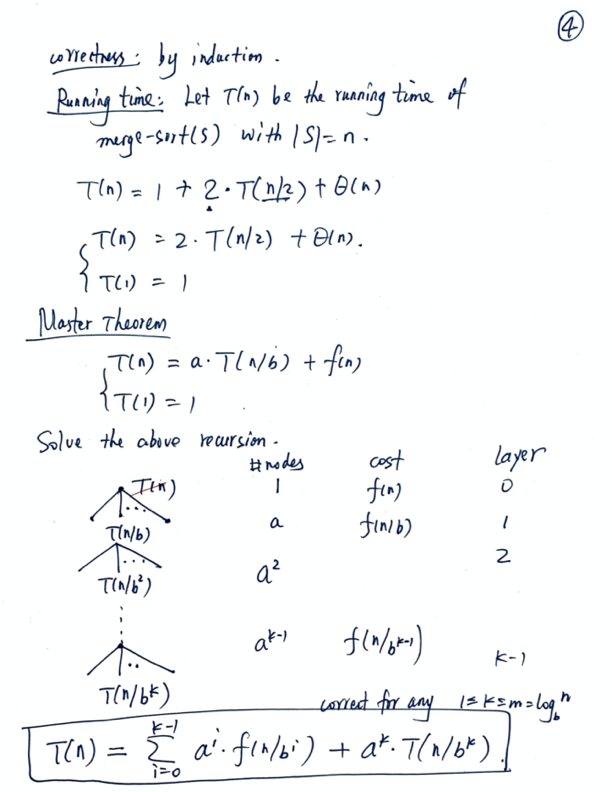 ④
correctness: by induction.
Running time: Let T(n) be the running time of
merge-sort(S) with |S|=n.
T(n) = 1 + 2·T(n/2) + Θ(n)
T(n) = 2·T(n/2) + Θ(n).
T(1) = 1
Master Theorem
T(n) = a·T(n/b) + f(n)
T(1) = 1
Solve the above recursion.
#nodes cost layer
T(n) 1 f(n) 0
T(n/b) a f(n/b) 1
T(n/b²) a² 2
a^{k-1} f(n/b^{k-1}) k-1
T(n/b^k)
correct for any 1≤k≤m=log_b^n
T(n) = Σ_{i=0}^{k-1} a^i·f(n/b^i) + a^k·T(n/b^k).